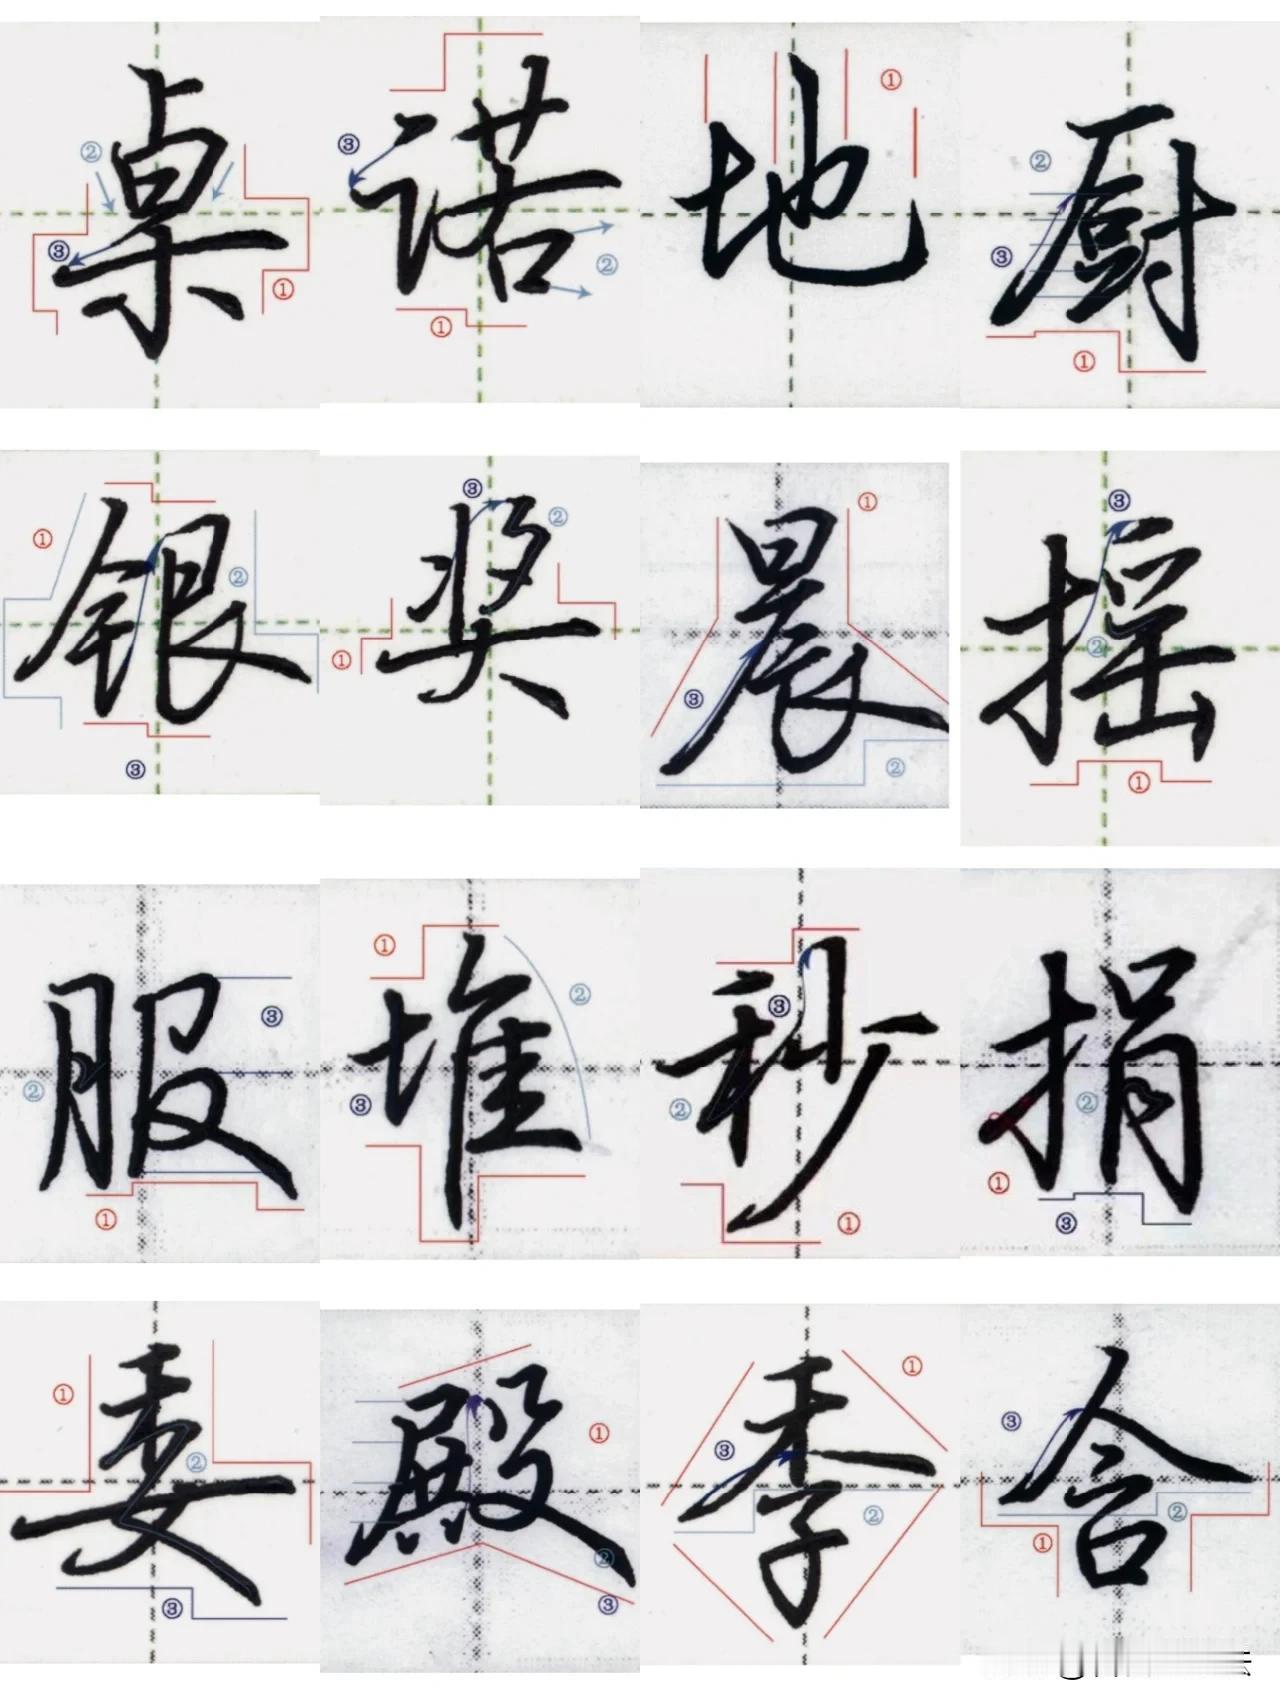 桌 ① ② ③ 诺 ① ② ③ 地 ① 厨 ① ② ③
银 ① ② ③ 奖 ① ② ③ 晨 ① ② ③ 摇 ① ② ③
服 ① ② ③ 堆 ① ② ③ 秒 ① ② ③ 捐 ① ② ③
委 ① ② ③ 殿 ① ② ③ 季 ① ② ③ 含 ① ② ③